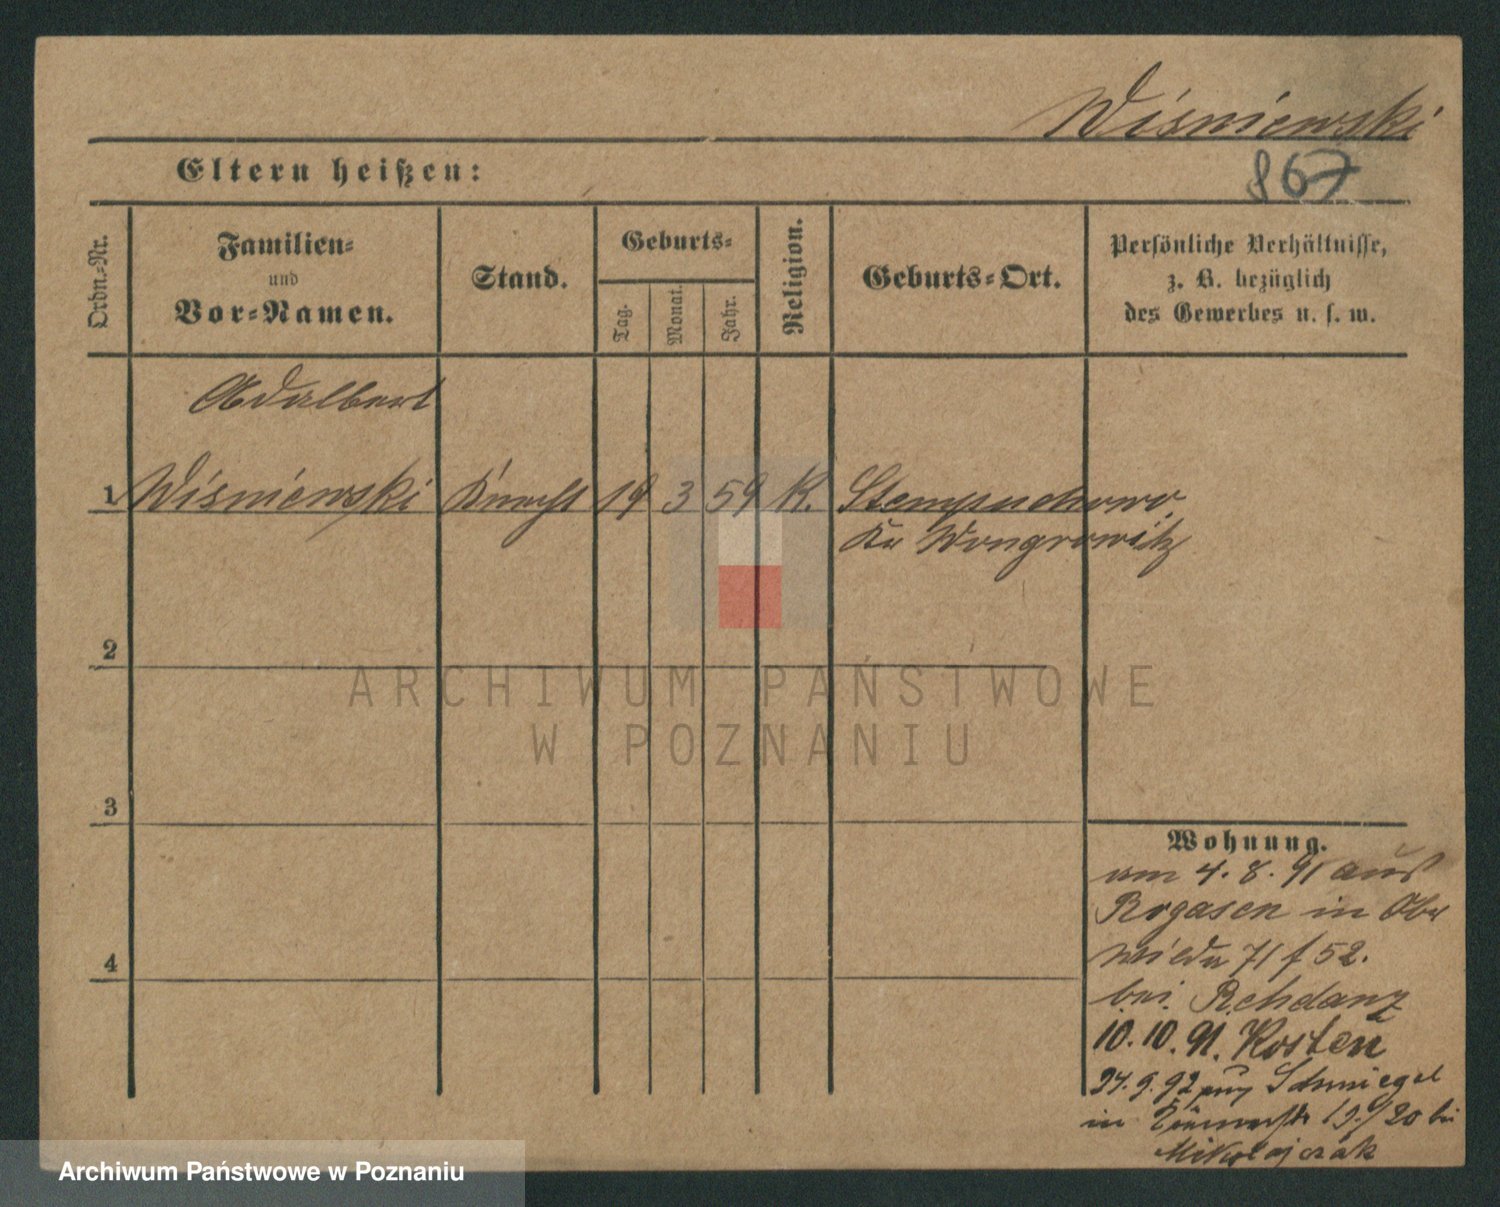 Wiśniewski
867
Eltern heißen:
Ordn.-Nr.
Familien-
und
Vor-Namen.
Stand.
Geburts-
Tag.
Monat.
Jahr.
Religion.
Geburts-Ort.
Persönliche Verhältnisse,
z. B. bezüglich
des Gewerbes u. s. w.
Adalbert
1 Wiśniewski Knecht 19 3 59 K. Stempuchowo
Kr Wongrowitz
2
3
4
Wohnung.
am 4. 8. 91 aus
Rogasen in Ober
wilda 71 f 52.
bei Rehdanz
10. 10. 91. Kosten
24. 9. 92 Schmiegel
in 19/20 bei
Mikołajczak
ARCHIWUM PAŃSTWOWE
W POZNANIU
Archiwum Państwowe w Poznaniu